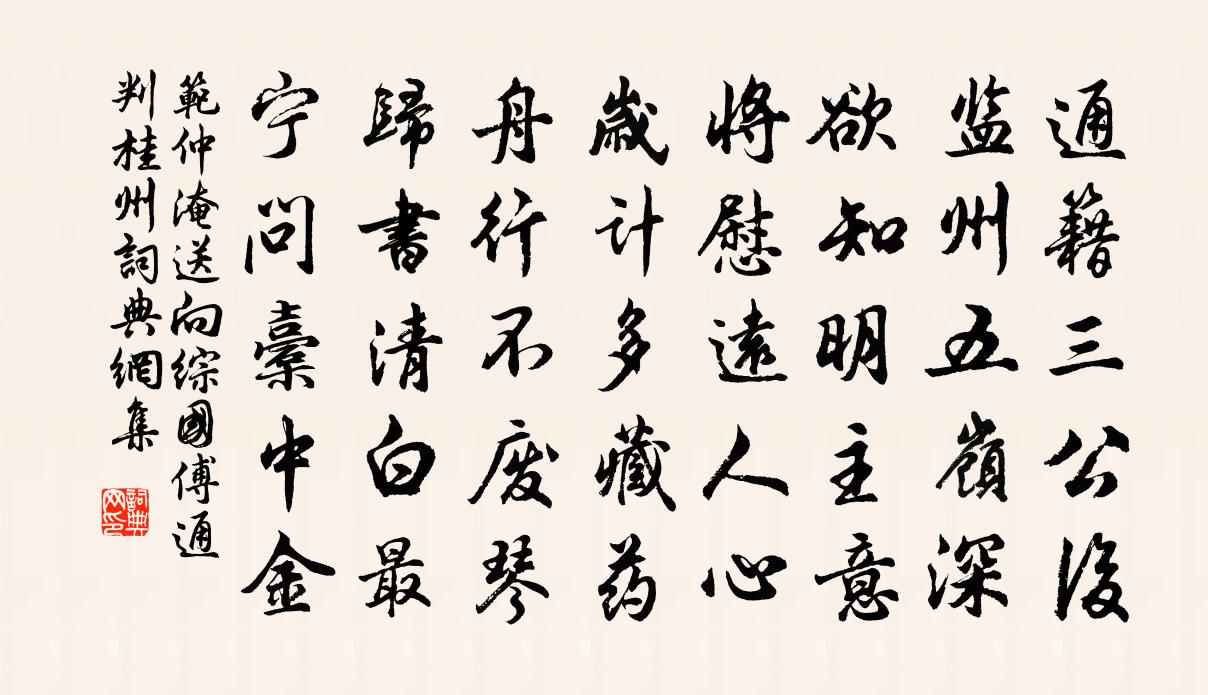 通籍三公後
监州五嶺深
欲知明主意
将慰遠人心
歲计多藏药
舟行不废琴
歸書清白最
宁问橐中金
範仲淹送向綜國傅通
判桂州詞典網集
詞典
网印